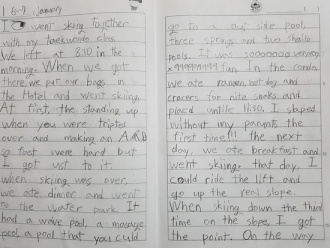 (6~9) January
I went skiing together
with my taekwondo class.
We left at 8:10 in the
morning. When we got
there, we put our bags in
the Hotel and went skiing.
At first, the standing up
when you were
over and making an A
so fast were hard but
i got ust to it.
when skiing was over,
we ate dinner and went
to the water park. It
had a wave pool, a massage
pool, a pool that you could
go in out side pool,
three springs and two shallo
pools. It was sooooooo
fun. In the condo,
we ate ramen, hot dog and
cracers for nite snaks and
played untile 11:30. I sleped
without my parents the
first time!!! the next
day, we ate breakfast and
went skiing. that day, I
could ride the lift and
go up the real slope.
When skiing down the third
time on the slope, I got
the point. On the way